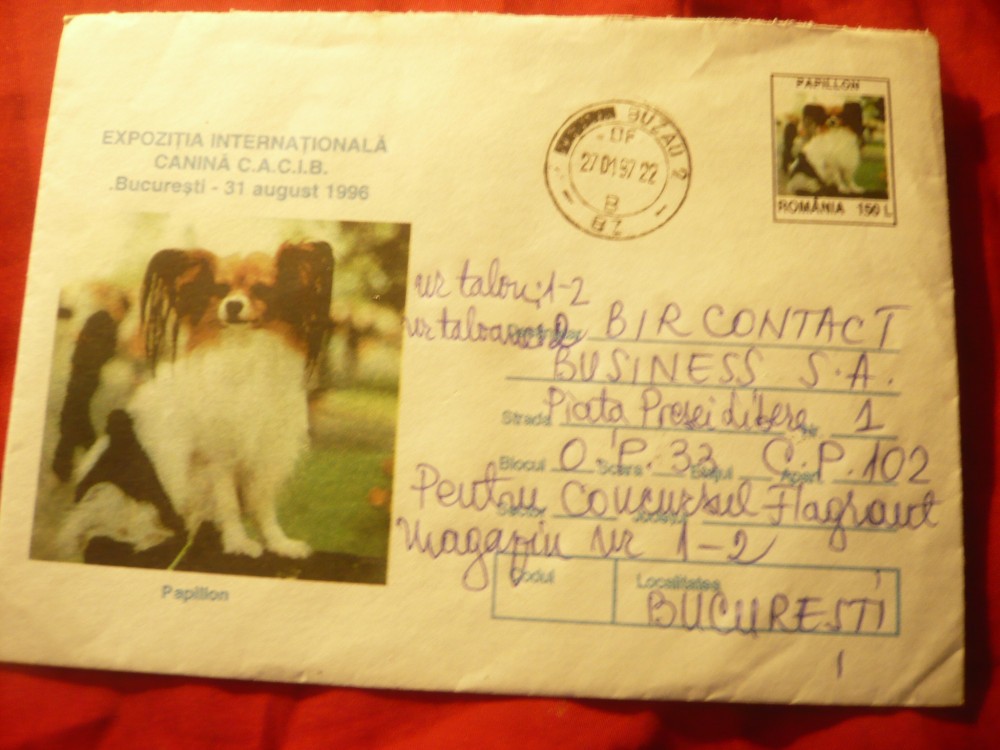 EXPOZIȚIA INTERNAȚIONALĂ
CANINĂ C.A.C.I.B.
București - 31 august 1996
Papillon
BUZAU 2
27 01 97 22
B
BZ
PAPILLON
ROMÂNIA 150 L
nr taloni 1-2
nr taloane 2
BIR CONTACT
BUSINESS S.A.
Strada Piața Presei Libere Nr. 1
Blocul Scara Etajul Apart.
O.P. 33 C.P. 102
Sector Județul
Pentru Concursul Flagrant
Magazin nr 1-2
Codul
Localitatea
BUCUREȘTI
1